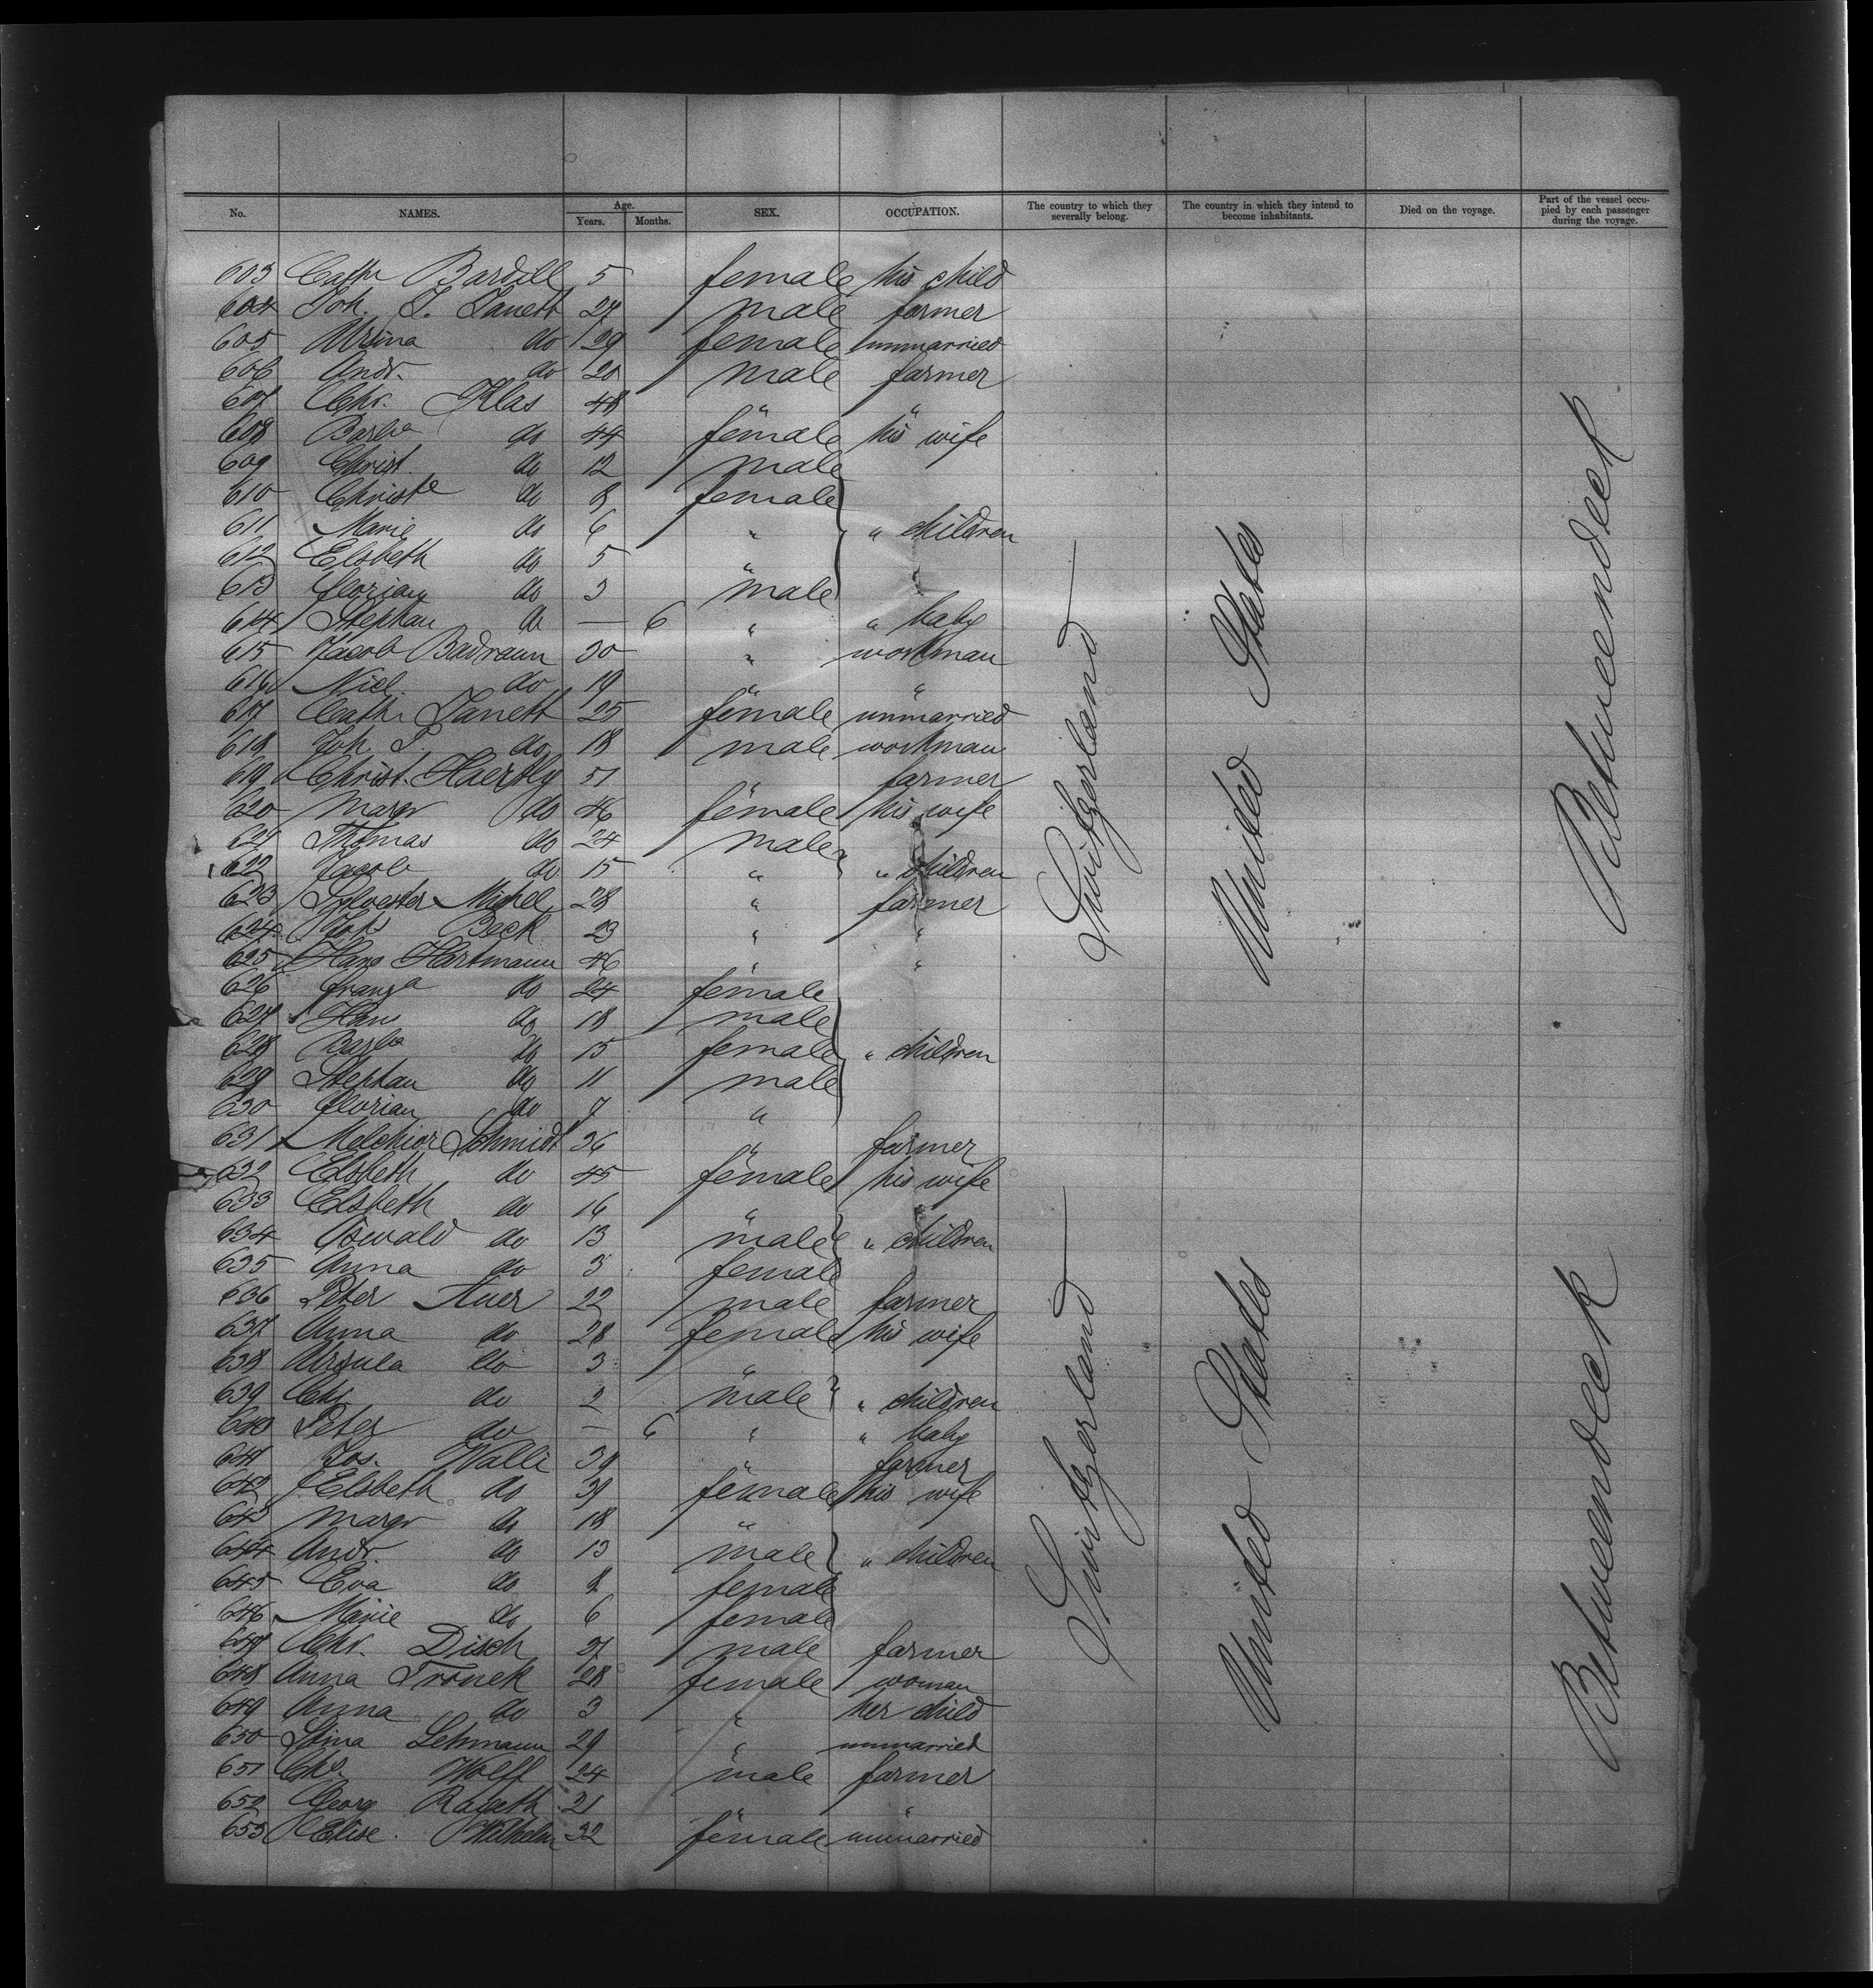 No. NAMES. Age. Years. Months. SEX. OCCUPATION. The country to which they severally belong. The country in which they intend to become inhabitants. Died on the voyage. Part of the vessel occupied by each passenger during the voyage.
603 Cathr Bardill 5 female his child
604 Joh. L. Janett 27 male farmer
605 Ursina do 29 female unmarried
606 Andr. do 20 male farmer
607 Chr. Klas 48 " "
608 Barba do 44 female his wife
609 Christ. do 12 male
610 Christe do 8 female
611 Marie do 6 " " children
612 Elsbeth do 5 "
613 Florian do 3 male
614 Stephan do — 6 " " baby
615 Jacob Badraun 30 " workman
616 Nicl. do 19 " "
617 Cath. Janett 25 female unmarried
618 Joh. P. do 18 male workman
619 Christ. Haertly 51 " farmer
620 Margr do 46 female his wife
621 Thomas do 24 male
622 Jacob do 15 " " children
623 Sylvester Michel 28 " farmer
624 Johs Beck 23 " "
625 Hans Hartmann 46 " "
626 Franza do 24 female
627 Hans do 18 male
628 Barba do 15 female " children
629 Stephan do 11 male
630 Florian do 7 "
631 Melchior Schmidt 36 " farmer
632 Elsbeth do 45 female his wife
633 Elsbeth do 16 "
634 Oswald do 13 male " children
635 Anna do 3 female
636 Peter Auer 22 male farmer
637 Anna do 28 female his wife
638 Ursula do 3 "
639 Chr. do 2 male " children
640 Peter do — 6 " " baby
641 Jos. Walli 39 " farmer
642 Elsbeth do 39 female his wife
643 Margr do 18 "
644 Andr. do 13 male " children
645 Eva do 8 female
646 Marie do 6 female
647 Chr. Disch 27 male farmer
648 Anna Tronek 28 female woman
649 Anna do 3 " her child
650 Stina Lehmann 29 " unmarried
651 Chr. Wolff 24 male farmer
652 Georg Ragath 21 " "
653 Elise Wilhelm 32 female unmarried
Switzerland
United States
Betweendeck
Switzerland
United States
Betweendeck